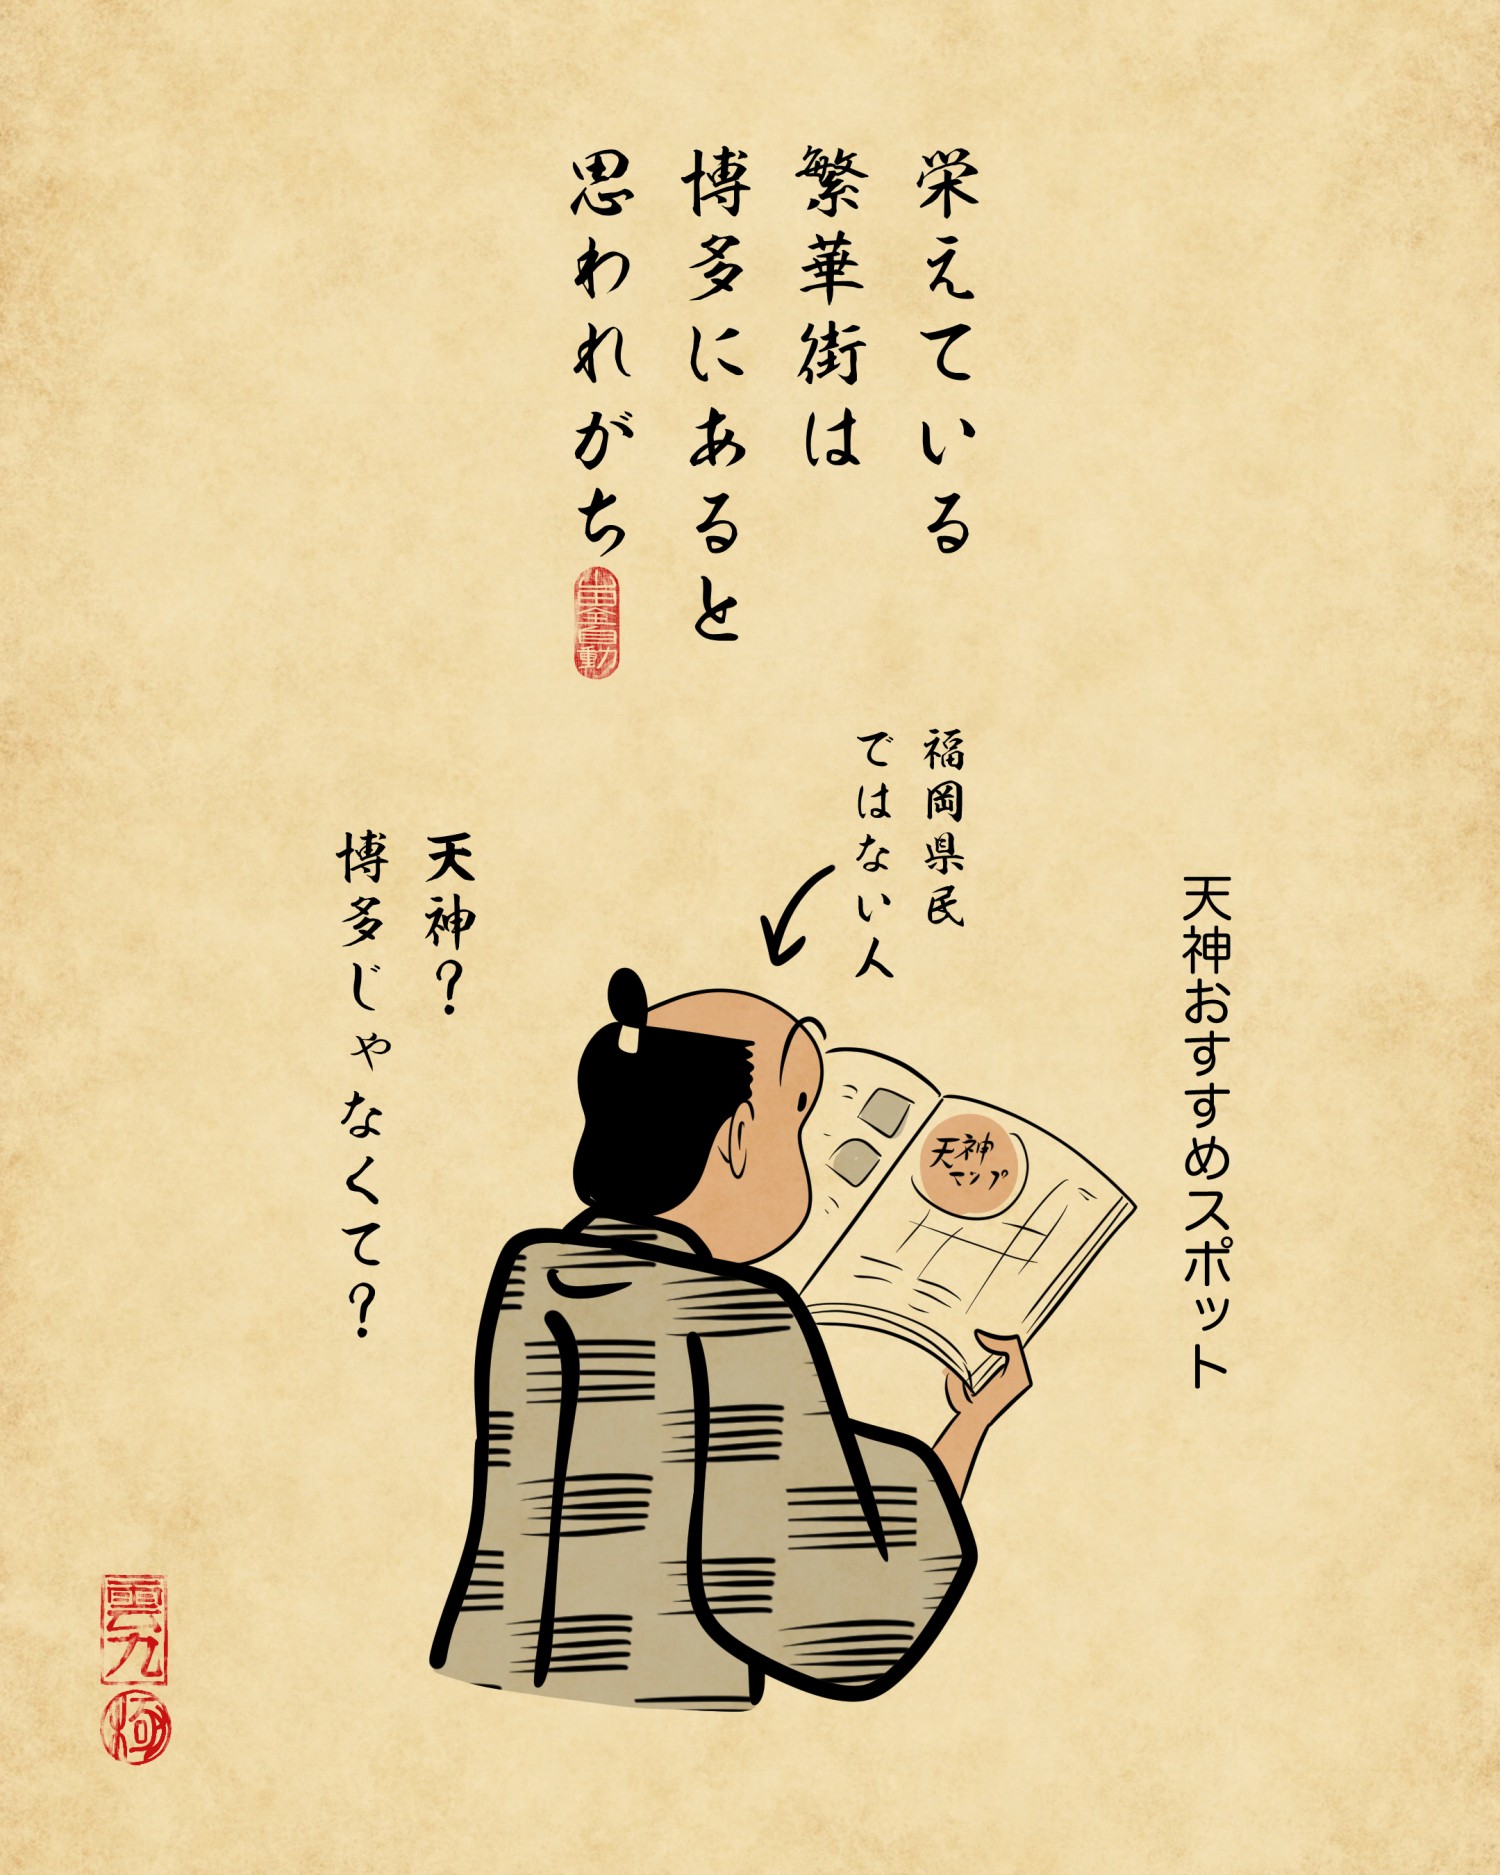 栄えている
繁華街は
博多にあると
思われがち
山田全自動
福岡県民
ではない人
天神おすすめスポット
天神マップ
天神？
博多じゃなくて？